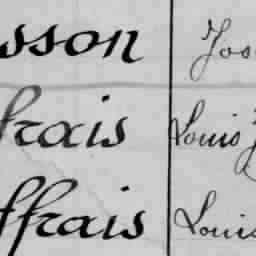 sson Jos
frais Louis J
ffrais Louis